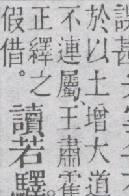 於以土增大道
不連屬王肅霍
正繹之
假借。
讀若驛。